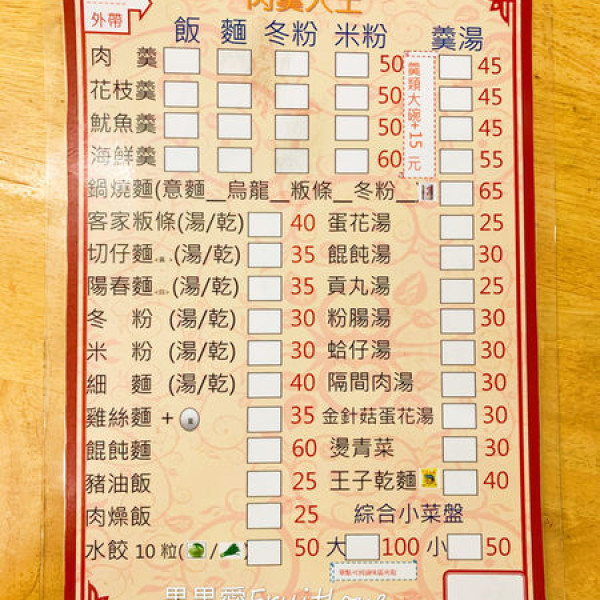 肉羹大王
外帶
飯 麵 冬粉 米粉 羹湯
肉羹 50 45
花枝羹 50 45
魷魚羹 50 45
海鮮羹 60 55
羹類大碗+15元
鍋燒麵(意麵__烏龍__粄條__冬粉__ 65
客家粄條(湯/乾) 40 蛋花湯 25
切仔麵(湯/乾) 35 餛飩湯 30
陽春麵(湯/乾) 35 貢丸湯 25
冬粉(湯/乾) 30 粉腸湯 30
米粉(湯/乾) 30 蛤仔湯 30
細麵(湯/乾) 40 隔間肉湯 30
雞絲麵+ 35 金針菇蛋花湯 30
餛飩麵 60 燙青菜 30
豬油飯 25 王子乾麵 40
肉燥飯 25 綜合小菜盤
水餃10粒( / ) 50 大 100 小 50
果果愛FruitLove